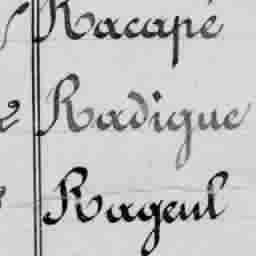 Racapé
Radigue
Rageul